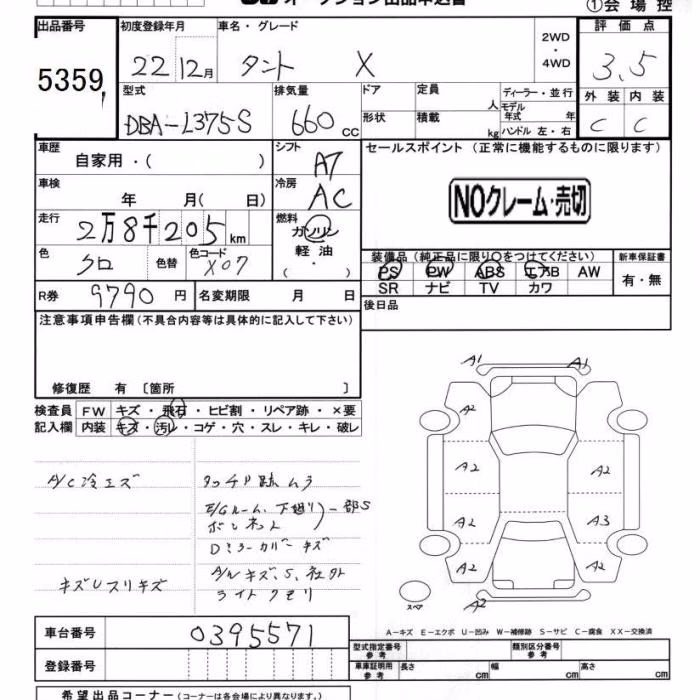 オークション出品申込書
①会場控
出品番号 初度登録年月 車名・グレード 評価点
5359 22 12月 タント X 2WD・4WD 3.5
型式 排気量 ドア 定員 人 ディーラー・並行 外装 内装
DBA-L375S 660cc 形状 積載 kg モデル年式 年 ハンドル 左・右 C C
車歴 自家用・( ) シフト AT セールスポイント (正常に機能するものに限ります)
車検 年 月( 日) 冷房 AC NOクレーム・売切
走行 2万8千205km 燃料 ガソリン 軽油・( )
色 クロ 色替 色コード X07 装備品(純正品に限り○をつけてください) 新車保証書
PS PW ABS エアB AW 有・無
SR ナビ TV カワ
R券 9790円 名変期限 月 日 後日品
注意事項申告欄(不具合内容等は具体的に記入して下さい)
修復歴 有 〔箇所 〕
検査員 FW キズ・飛石・ヒビ割・リペア跡・×要
記入欄 内装 キズ・汚レ・コゲ・穴・スレ・キレ・破レ
A/C冷エズ タッチP跡ムラ
E/Gルーム、下廻り一部S
ボンネット
Dミラーカバーキズ
キズUスリキズ A/Wキズ、S、
ライトクモリ
A1 A1
A2
A2 A2
A2 A3
A2 A2
スペア A2
A-キズ E-エクボ U-凹み W-補修跡 S-サビ C-腐食 XX-交換済
車台番号 0395571 型式指定番号 参考 類別区分番号 参考
登録番号 車庫証明用 参考 長さ cm 幅 cm 高さ cm
希望出品コーナー(コーナーは各会場により異なります。)